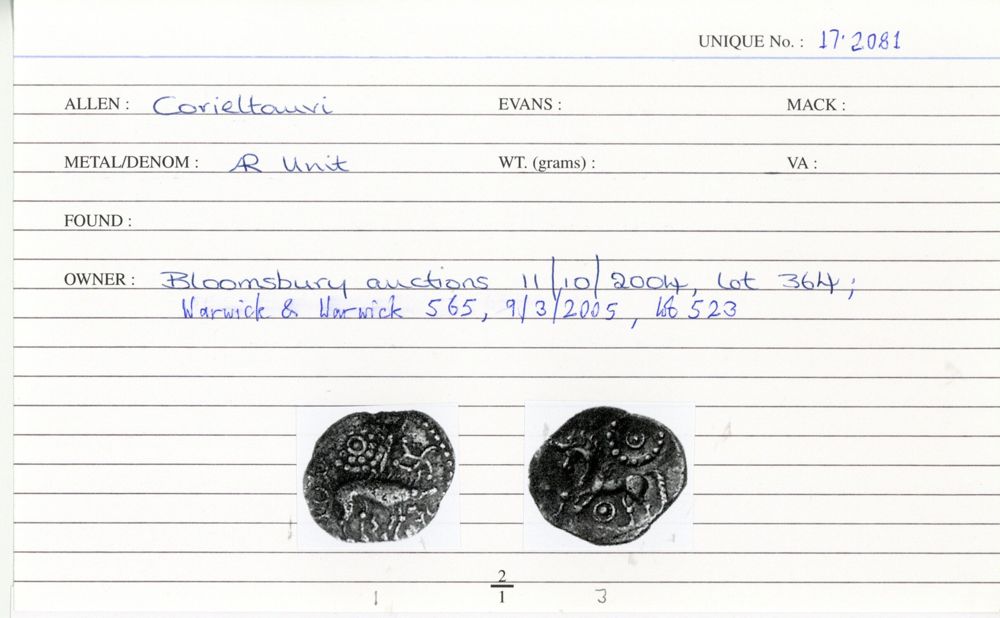 UNIQUE No. : 17·2081
ALLEN : Corieltauvi EVANS : MACK :
METAL/DENOM : AR Unit WT. (grams) : VA :
FOUND :
OWNER : Bloomsbury auctions 11/10/2004, lot 364;
Warwick & Warwick 565, 9/3/2005, lot 523
2
1 1 3